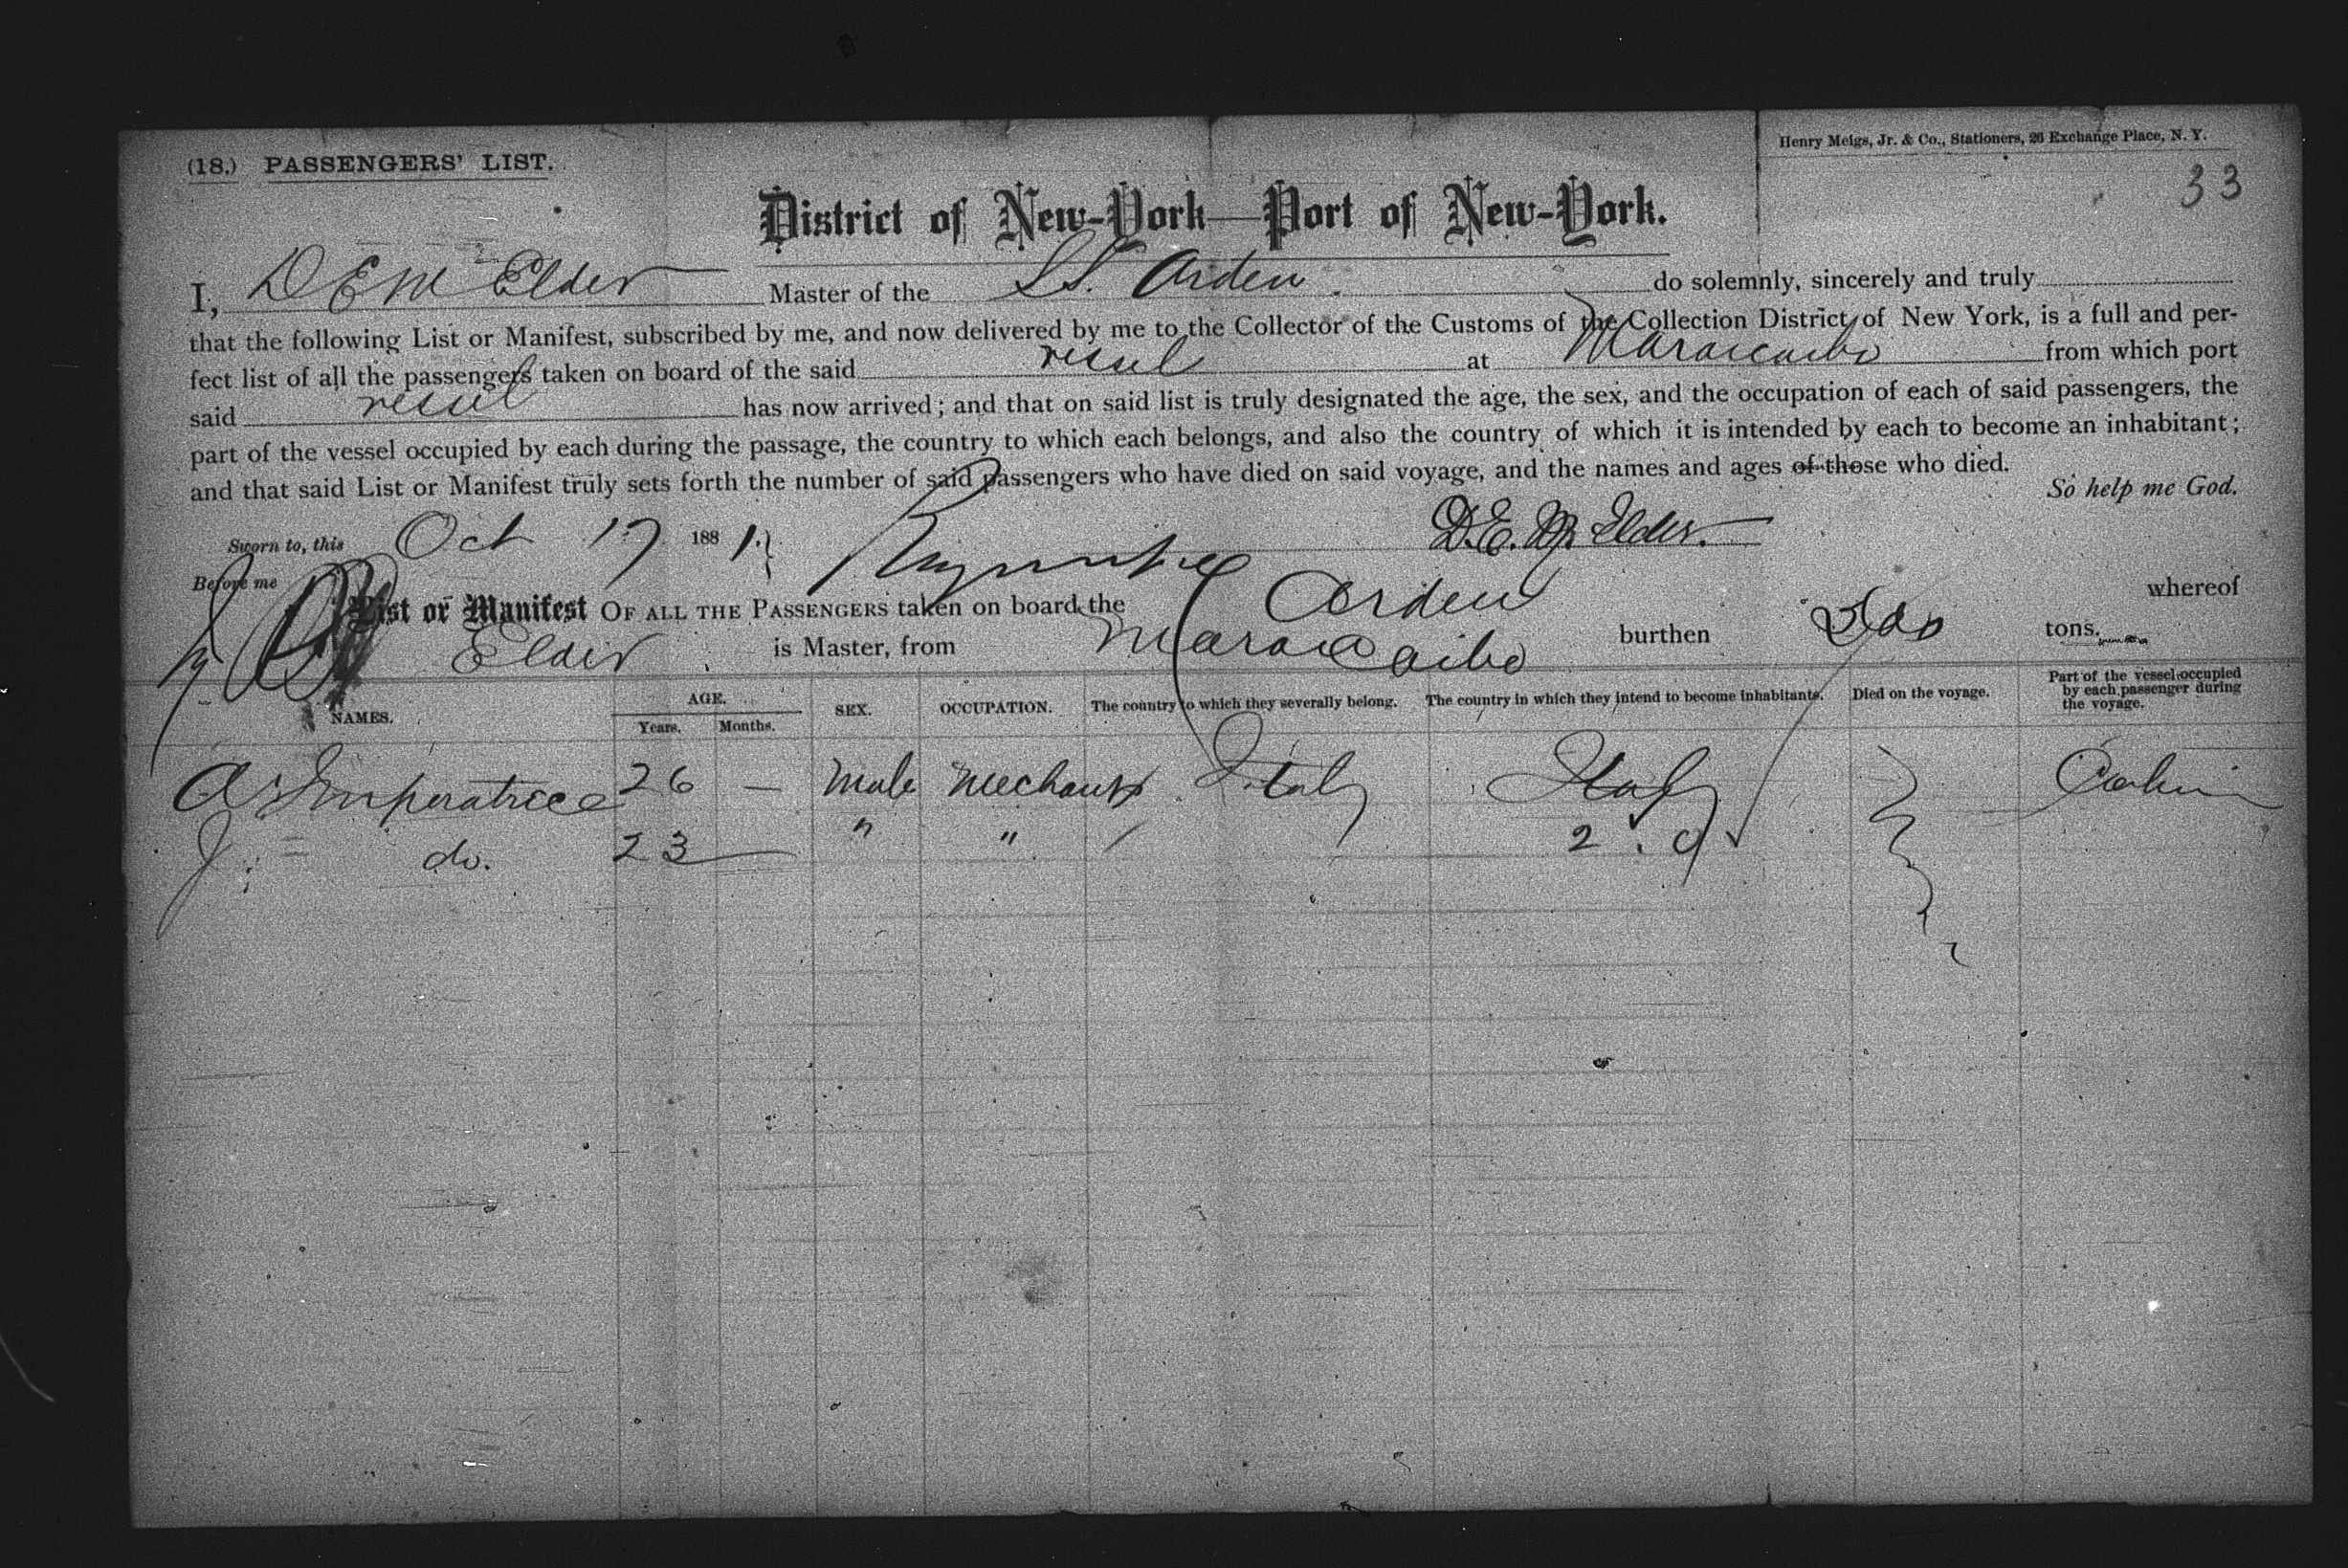 (18.) PASSENGERS' LIST.
Henry Meigs, Jr. & Co., Stationers, 26 Exchange Place, N. Y.
33
District of New-York—Port of New-York.
I, D E M Elder Master of the S.S. Arden do solemnly, sincerely and truly
that the following List or Manifest, subscribed by me, and now delivered by me to the Collector of the Customs of the Collection District of New York, is a full and per-
fect list of all the passengers taken on board of the said vessel at Maracaibo from which port
said vessel has now arrived; and that on said list is truly designated the age, the sex, and the occupation of each of said passengers, the
part of the vessel occupied by each during the passage, the country to which each belongs, and also the country of which it is intended by each to become an inhabitant;
and that said List or Manifest truly sets forth the number of said passengers who have died on said voyage, and the names and ages of those who died.
So help me God.
Sworn to, this Oct 17 1881. D. E. M. Elder.
Before me
List or Manifest OF ALL THE PASSENGERS taken on board the Arden whereof
Elder is Master, from Maracaibo burthen tons.
NAMES. AGE. Years. Months. SEX. OCCUPATION. The country to which they severally belong. The country in which they intend to become inhabitants. Died on the voyage. Part of the vessel occupied by each passenger during the voyage.
A Imperatrice 26 — Male Italy Italy Cabin
J. do. 23 — " " 2